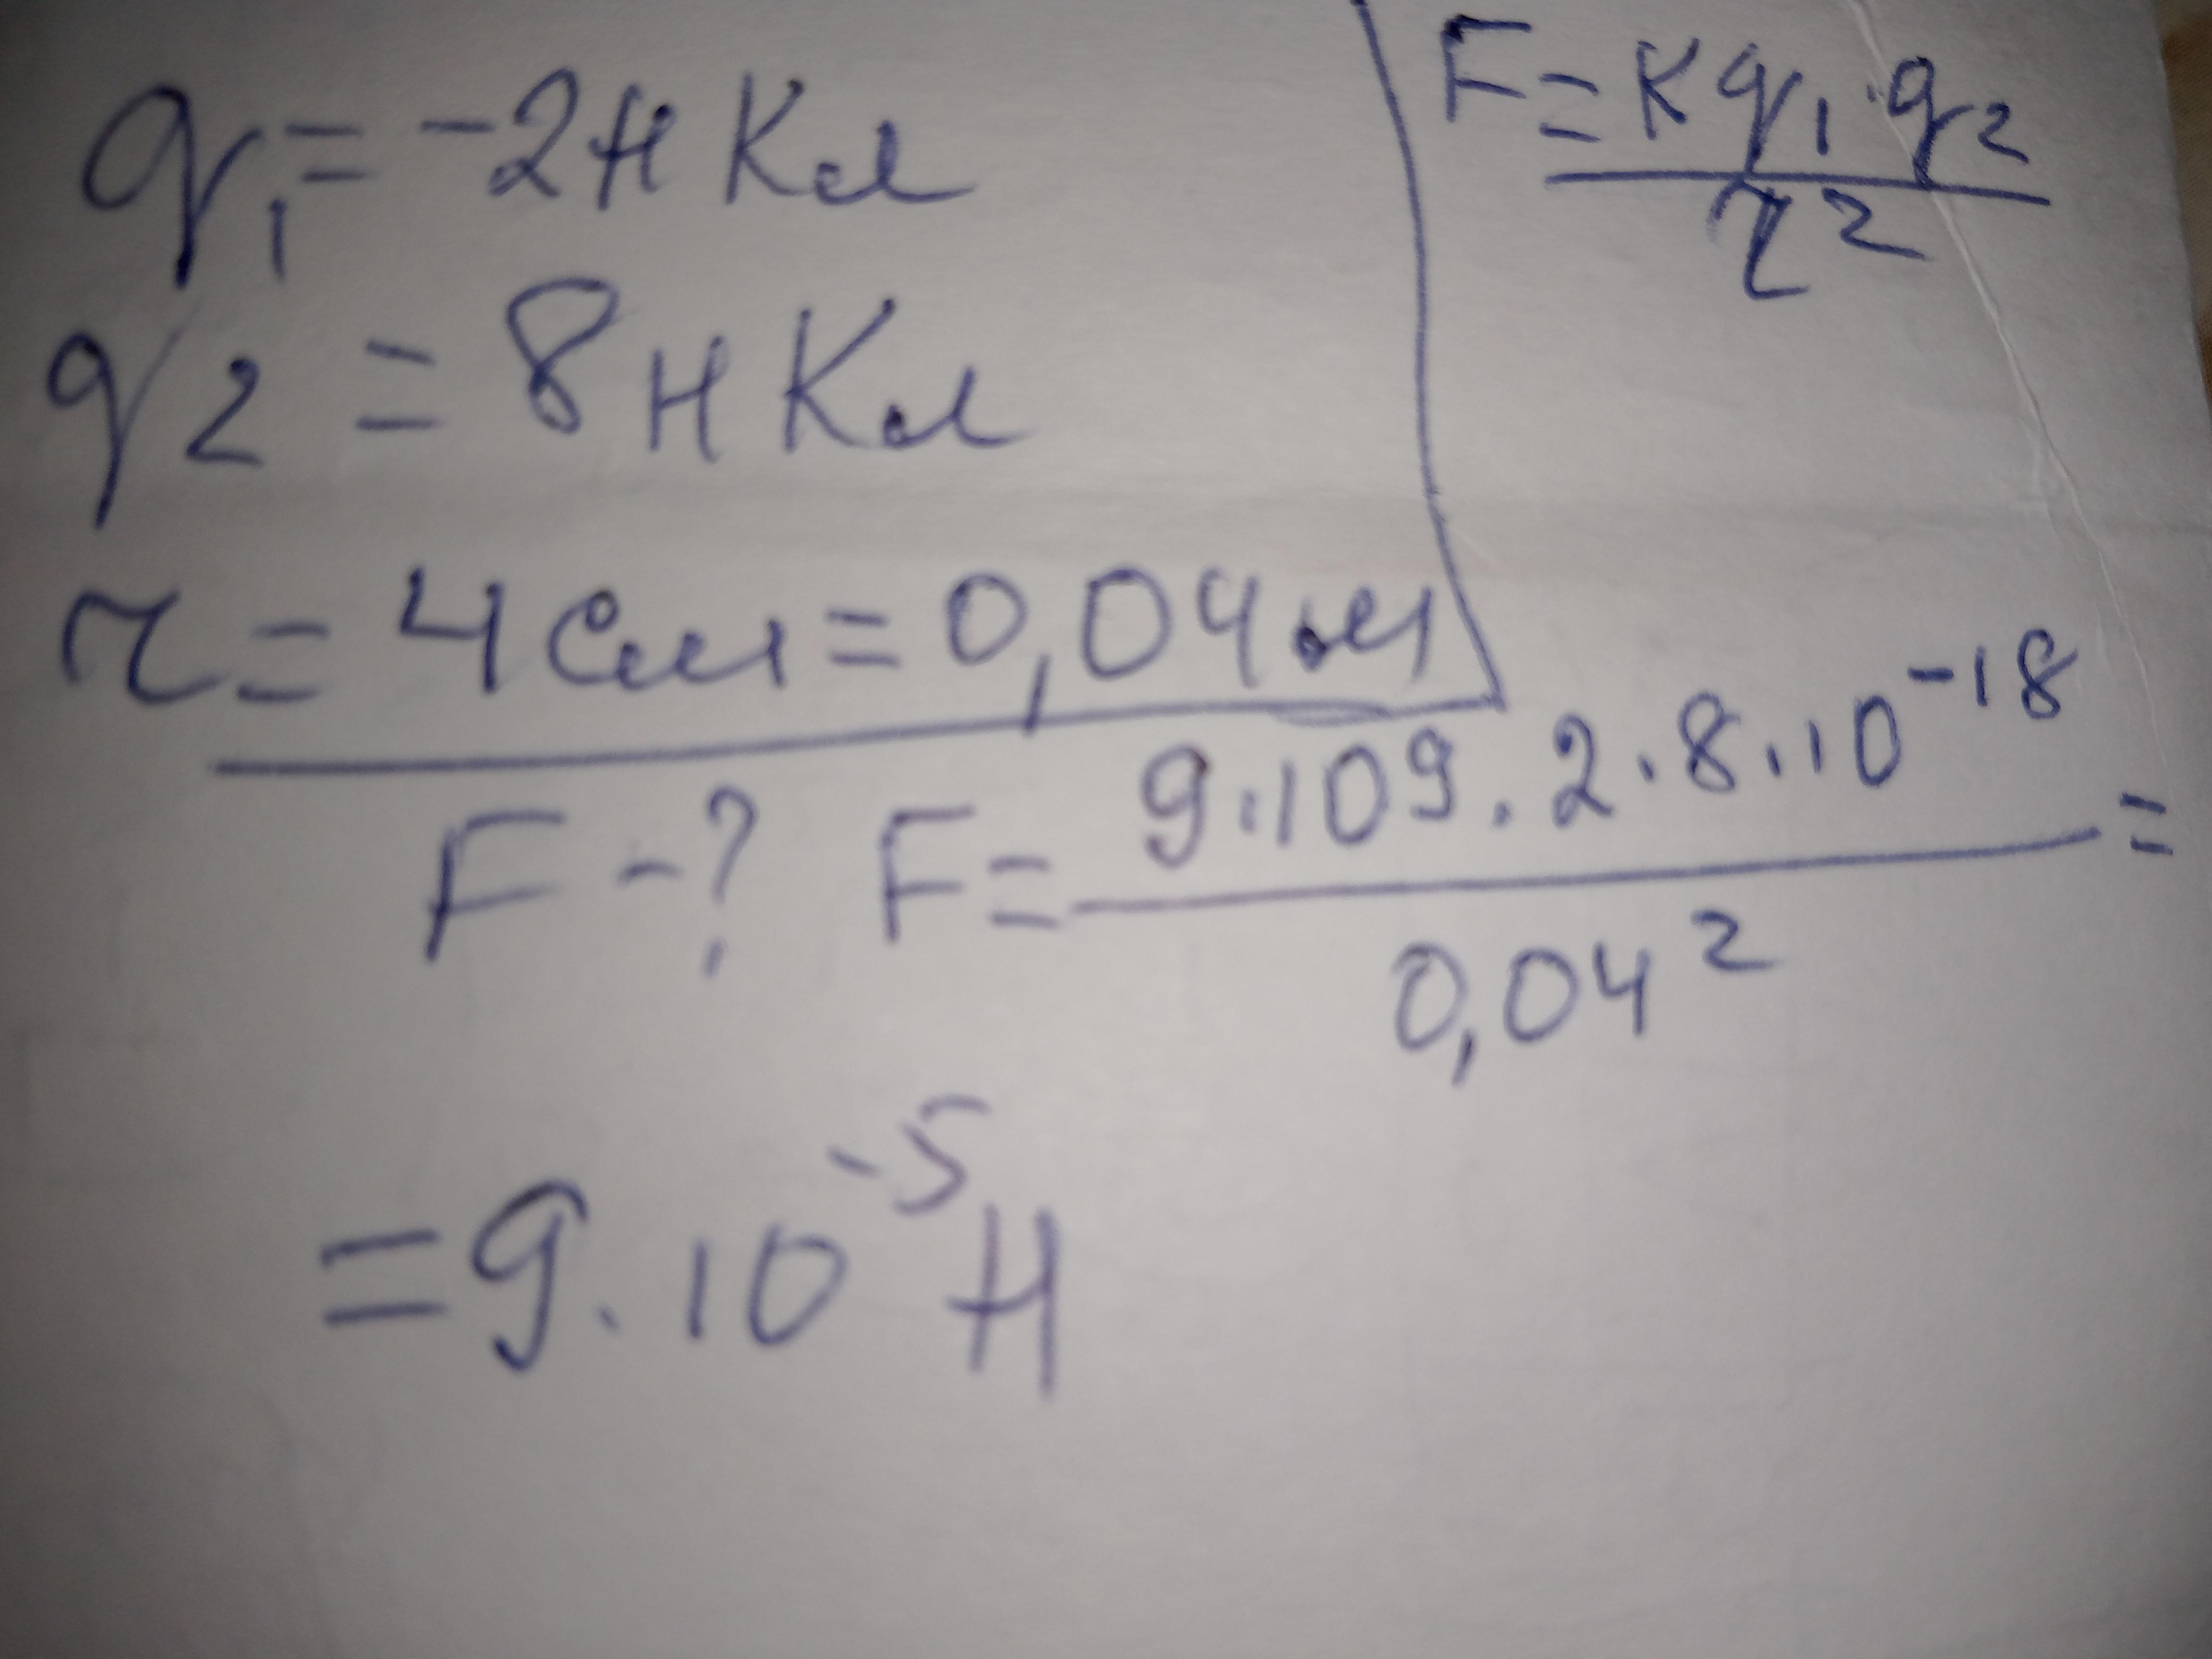 q₁ = -2 н Кл
q2 = 8 н Кл
r = 4 см = 0,04 м
F = K q₁ · q₂
r²
F - ?
F = 9 · 10⁹ · 2 · 8 · 10⁻¹⁸ =
0,04²
= 9 · 10⁻⁵ Н